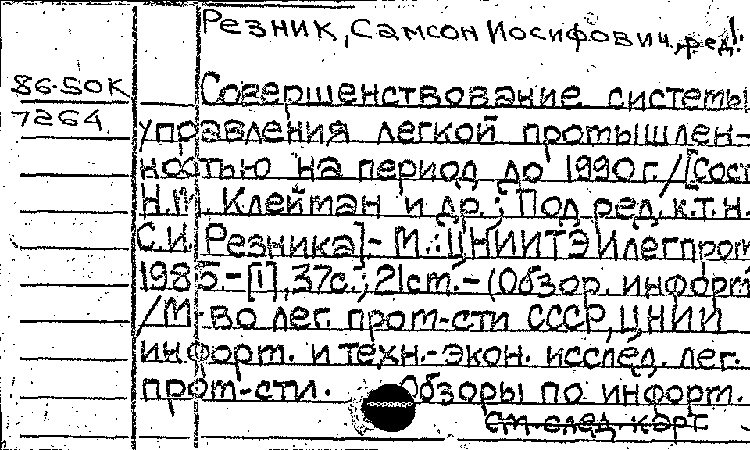 Резник, Самсон Иосифович, ред.
86-50К
7264
Совершенствование системы
управления легкой промышлен-
ностью на период до 1990 г. / [Сост.
Н.М. Клейман и др.; Под ред. к.т.н.
С.И. Резника]. - М.: ЦНИИТЭИлегпром
1985. - [1], 37с.; 21см. - (Обзор. информ.
/М-во лег. пром-сти СССР, ЦНИИ
информ. и техн.-экон. исслед. лег.
пром-сти. Обзоры по информ.
см. след. карт.